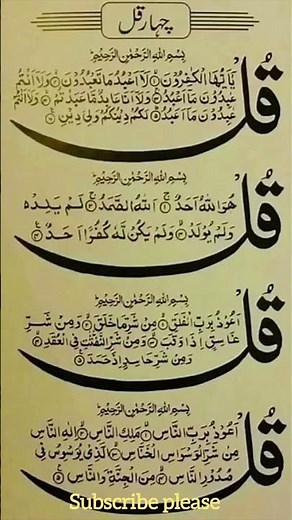 چہار قل
بِسْمِ اللهِ الرَّحْمٰنِ الرَّحِيْمِ
قُلْ
يٰٓاَيُّهَا الْكٰفِرُوْنَ ۝۱ لَآ اَعْبُدُ مَا تَعْبُدُوْنَ ۝۲ وَلَآ اَنْتُمْ
عٰبِدُوْنَ مَآ اَعْبُدُ ۝۳ وَلَآ اَنَا عَابِدٌ مَّا عَبَدْتُّمْ ۝۴ وَلَآ اَنْتُمْ
عٰبِدُوْنَ مَآ اَعْبُدُ ۝۵ لَكُمْ دِيْنُكُمْ وَلِيَ دِيْنِ ۝۶
بِسْمِ اللهِ الرَّحْمٰنِ الرَّحِيْمِ
قُلْ
هُوَ اللهُ اَحَدٌ ۝۱ اَللهُ الصَّمَدُ ۝۲ لَمْ يَلِدْ ۙ
وَلَمْ يُوْلَدْ ۝۳ وَلَمْ يَكُنْ لَّهٗ كُفُوًا اَحَدٌ ۝۴
بِسْمِ اللهِ الرَّحْمٰنِ الرَّحِيْمِ
قُلْ
اَعُوْذُ بِرَبِّ الْفَلَقِ ۝۱ مِنْ شَرِّ مَا خَلَقَ ۝۲ وَمِنْ شَرِّ
غَاسِقٍ اِذَا وَقَبَ ۝۳ وَمِنْ شَرِّ النَّفّٰثٰتِ فِي الْعُقَدِ ۝۴
وَمِنْ شَرِّ حَاسِدٍ اِذَا حَسَدَ ۝۵
بِسْمِ اللهِ الرَّحْمٰنِ الرَّحِيْمِ
قُلْ
اَعُوْذُ بِرَبِّ النَّاسِ ۝۱ مَلِكِ النَّاسِ ۝۲ اِلٰهِ النَّاسِ ۝۳
مِنْ شَرِّ الْوَسْوَاسِ الْخَنَّاسِ ۝۴ الَّذِيْ يُوَسْوِسُ فِيْ
صُدُوْرِ النَّاسِ ۝۵ مِنَ الْجِنَّةِ وَالنَّاسِ ۝۶
Subscribe please